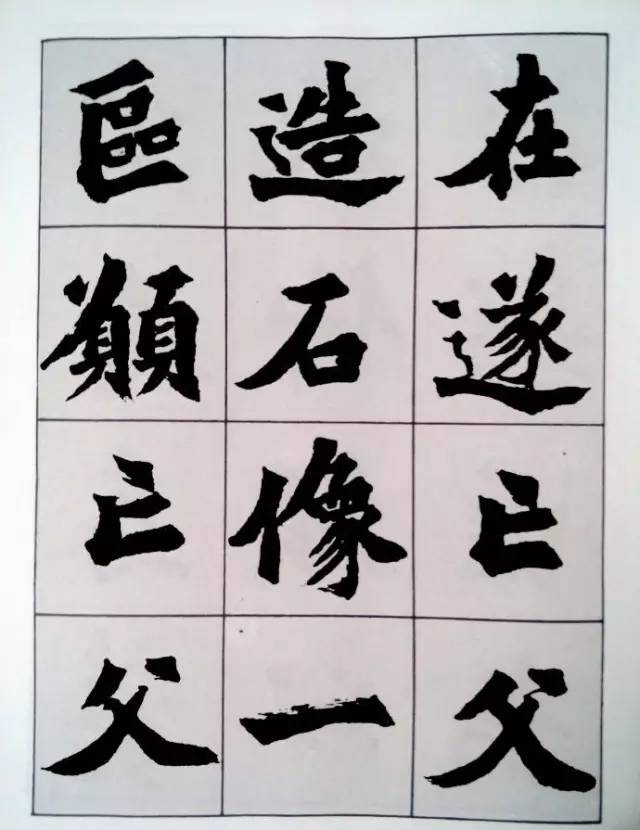 在遂亡父
造石像一
區願亡父